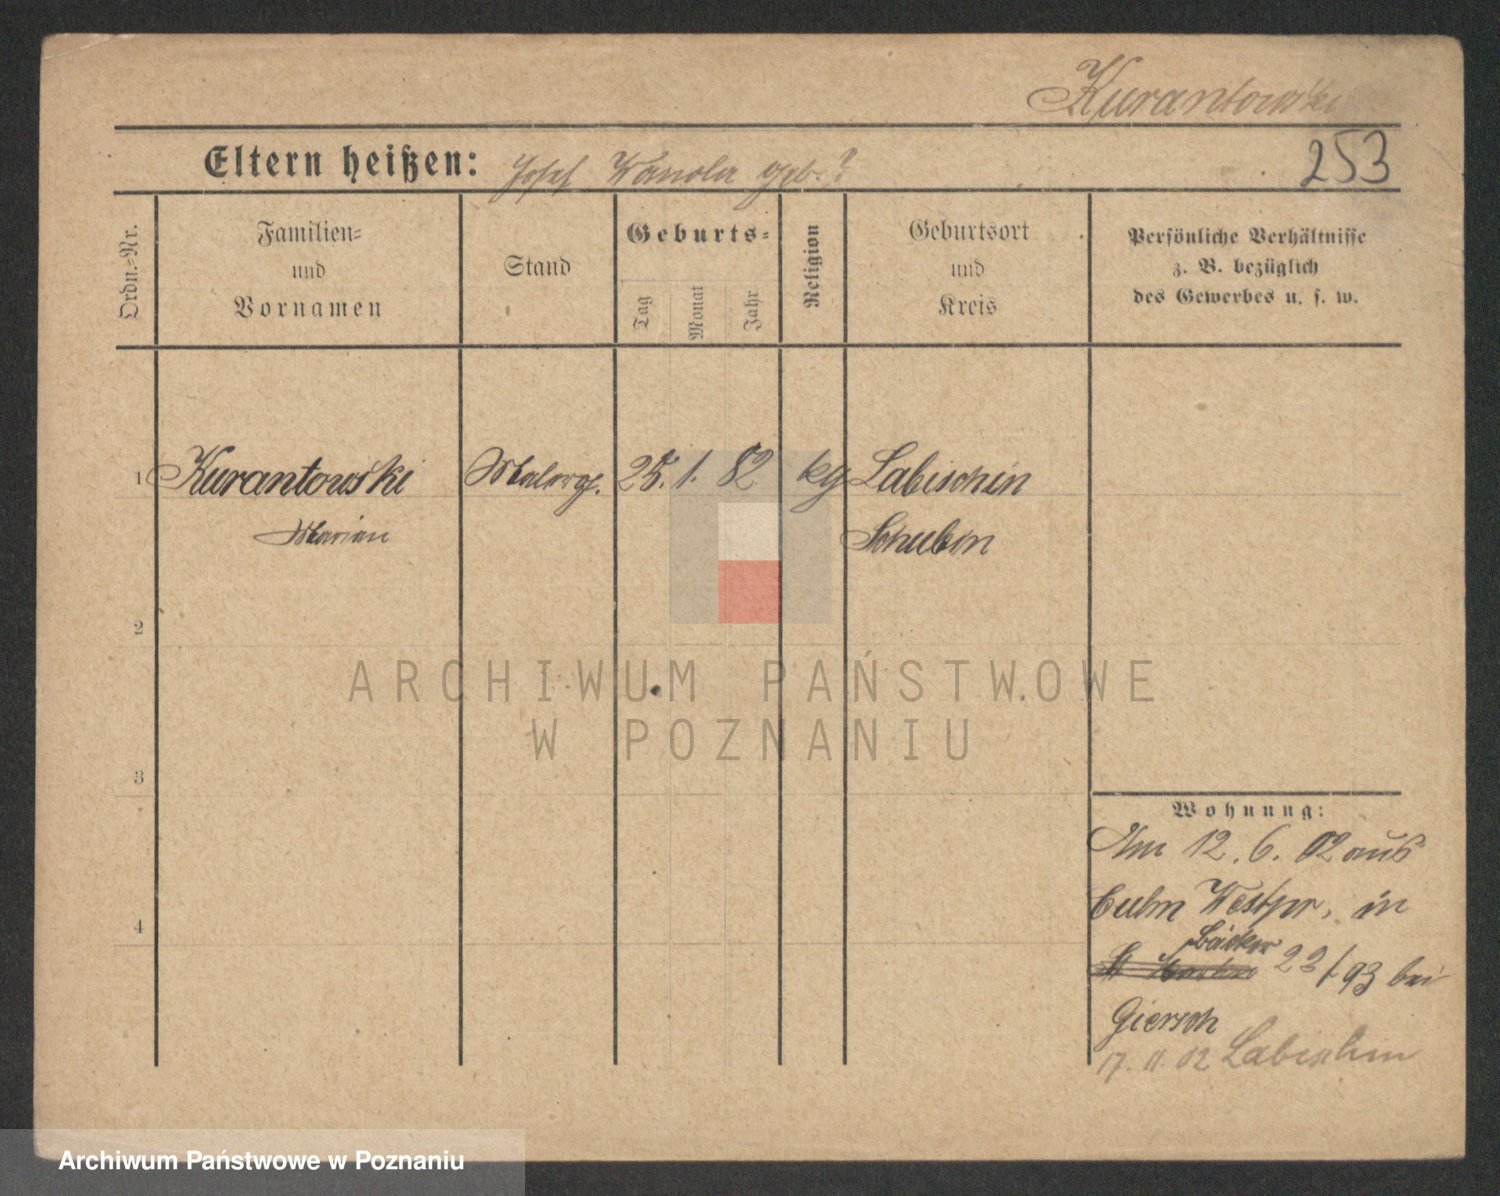 Kurantowski
Eltern heißen: Josef Wanda geb. ?
253
Ordn.-Nr.
Familien-
und
Vornamen
Stand
Geburts-
Tag
Monat
Jahr
Religion
Geburtsort
und
Kreis
Persönliche Verhältnisse
z. B. bezüglich
des Gewerbes u. s. w.
1 Kurantowski Malerge. 25. 1. 82 kg Labischin
Marian Schubin
2
3
4
Wohnung:
Am 12. 6. 02 aus
Culm Westpr, in
Bäcker
St Martin 22/93 bei
Giersch
17. 11. 02 Labischin
ARCHIWUM PAŃSTWOWE
W POZNANIU
Archiwum Państwowe w Poznaniu